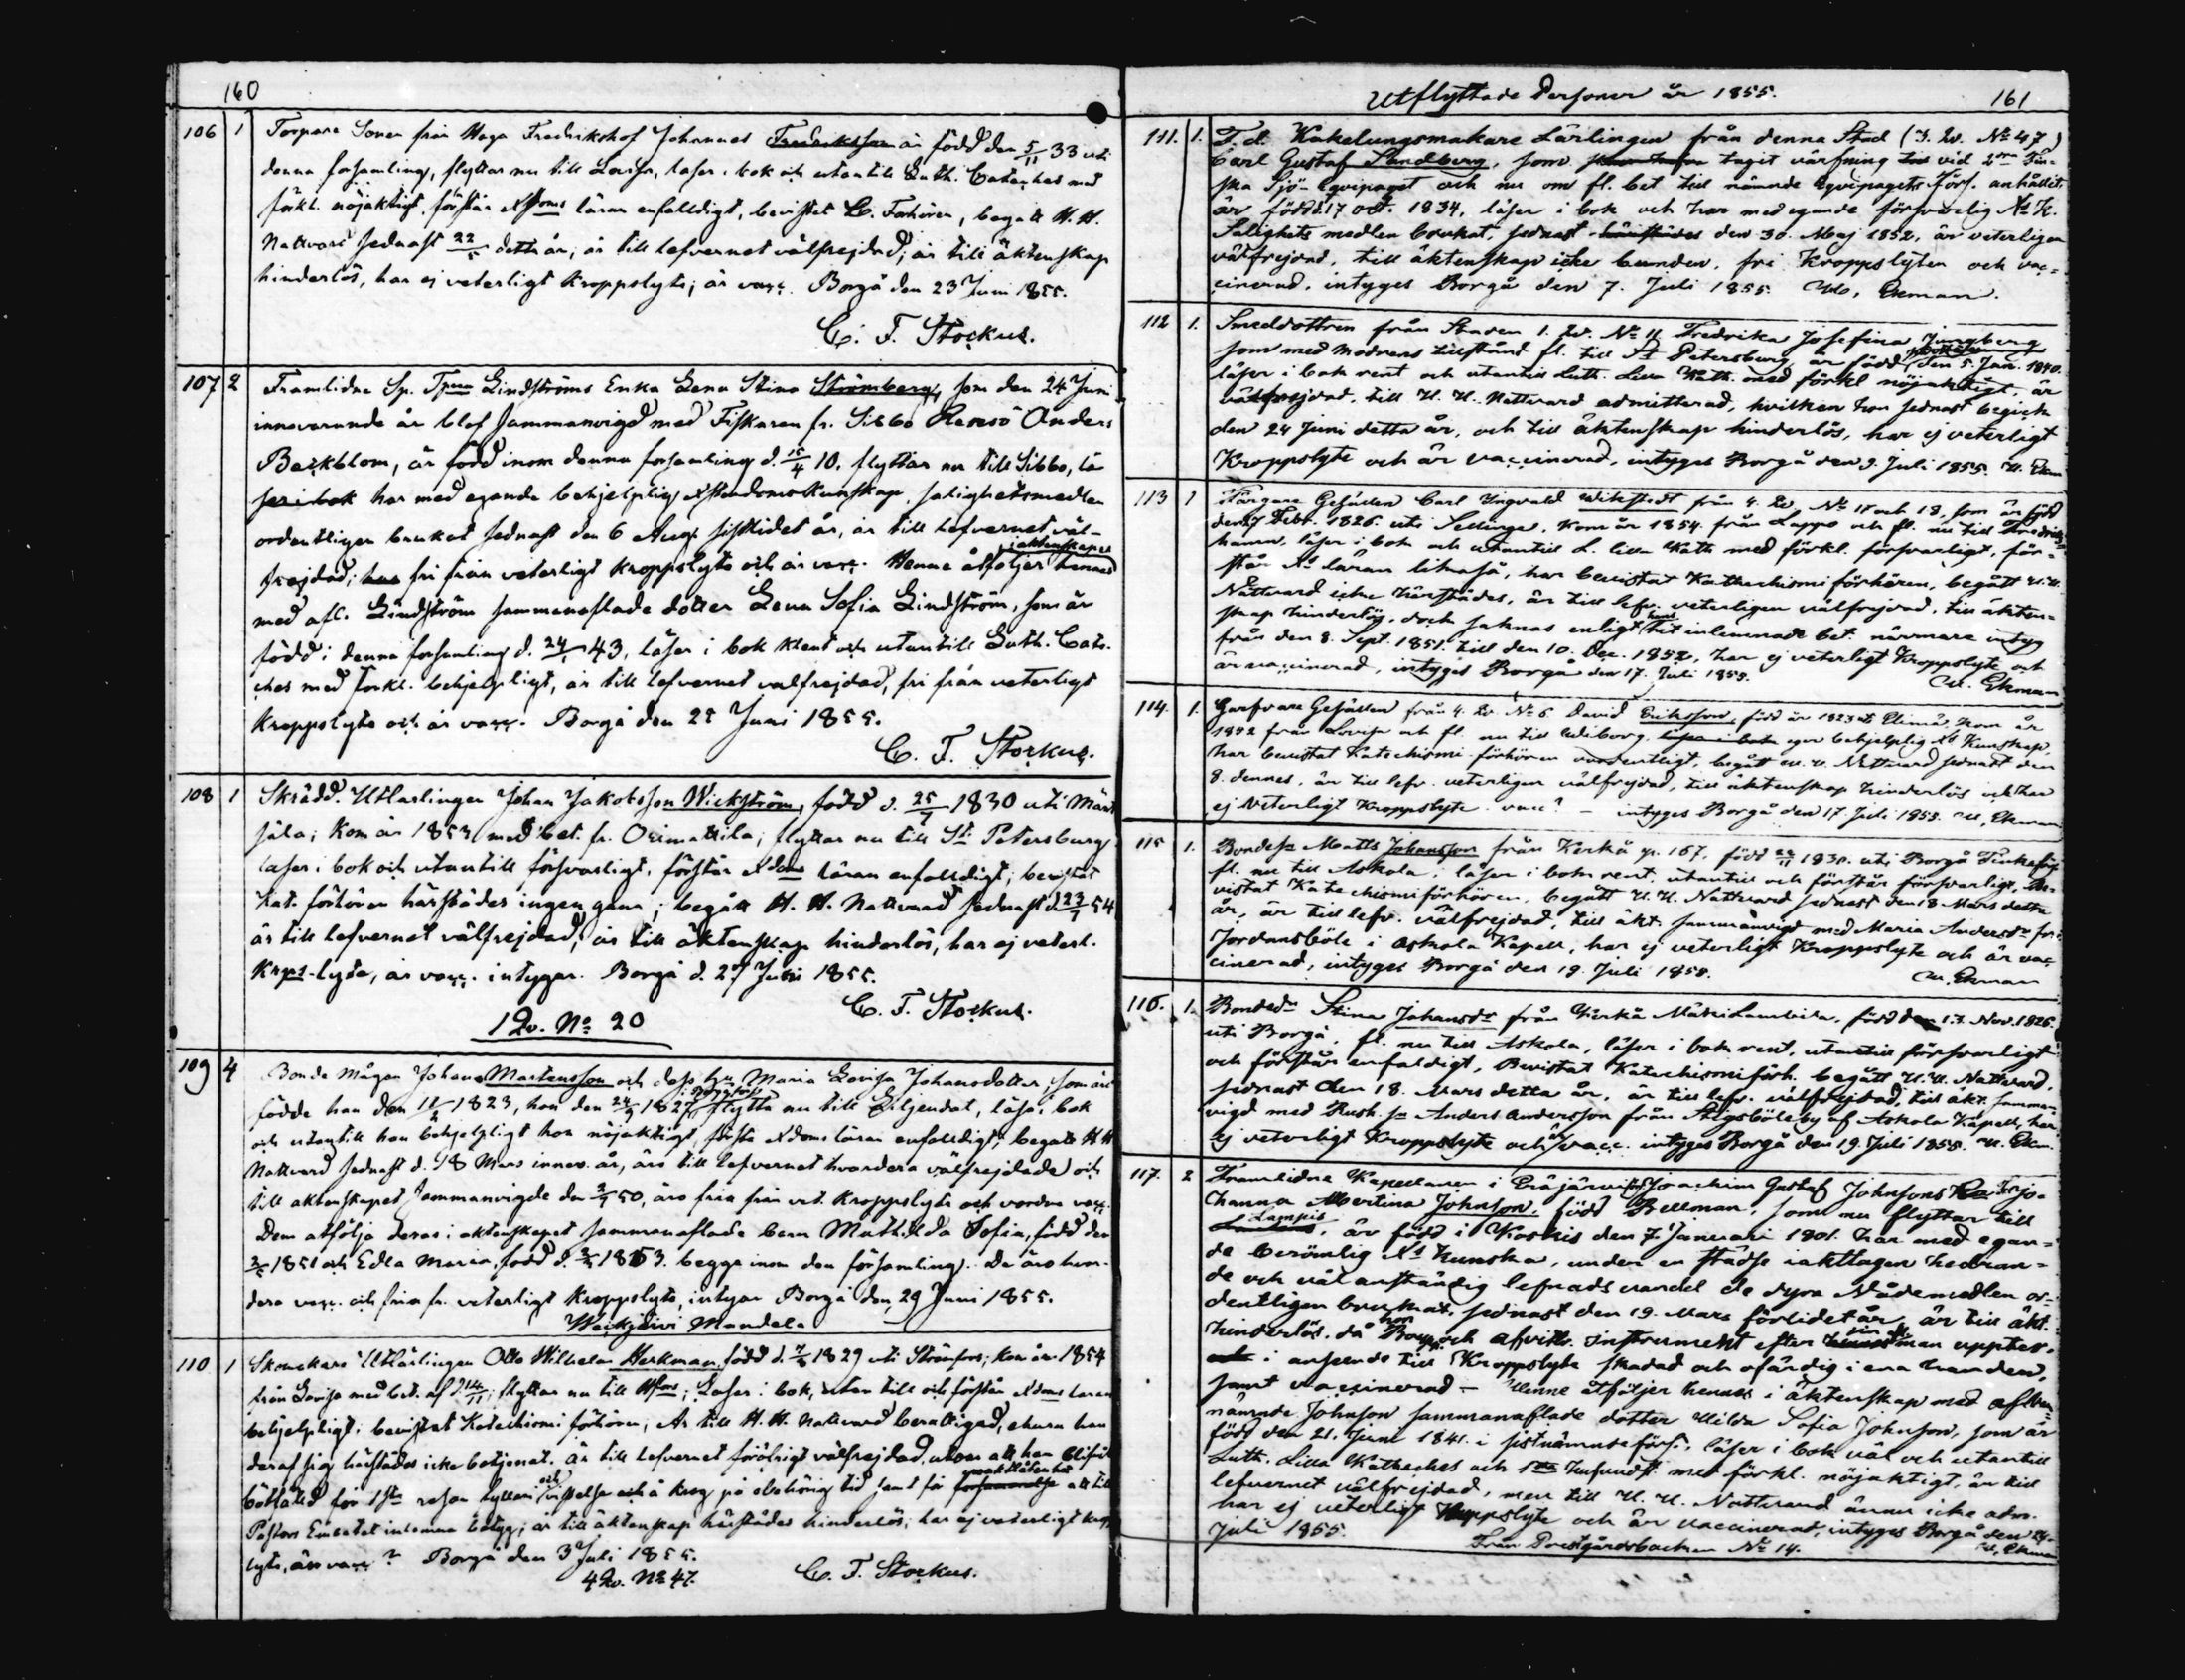 160
106 1 Torpare Sonen från Haga Fredrikshof Johannes Fredriksson är född den 5/11 33 uti
denna församling, flyttar nu till Lovisa, läser i bok och utantill Luth. Catechес med
förkl. nöjaktigt, förstår Xstdoms läran enfalldigt, bevistat C. Förhören, begått H. H.
Nattvard sednast 22/5 detta år; är till lefvernet välfrejdad; är till äktenskap
hinderlös, har ej veterligt Kroppslyte; är vacc. Borgå den 23 Juni 1855.
C. F. Stockus.
107 2 Framlidne Sp. Lindströms Enka Lena Stina Strömberg, som den 24 Juni
innevarande år blef Sammanvigd med Fiskaren fr. Sibbo Anders
Backblom, är född inom denna församling d. 15/4 10, flyttar nu till Sibbo, lä
ser i bok har med egande behjelplig Xstendoms Kunskap, salighetsmedlen
ordentligen brukat sednast den 6 Aug. sistlidet år, är till lefvernet väl-
frejdad; fri från veterligt kroppslyte och är vacc. Henne åtföljer hennes i äktenskapet
med afl. Lindström sammanaflade dotter Lena Sofia Lindström, som är
född i denna församling d. 24/1 43, läser i bok rent och utantill Luth. Cate-
ches med förkl. behjelpligt, är till lefvernet välfrejdad, fri från veterligt
Kroppslyte och är vacc. Borgå den 25 Juni 1855.
C. F. Stockus.
108 1 Skrädd. Utlärlingen Johan Jakobsson Wickström, född d. 25/7 1830 uti Mänt
säla; kom år 1853 med bet. fr. Orimattila; flyttar nu till St. Petersburg
läser i bok och utantill försvarligt, förstår Xdoms läran enfalldigt; bevistat
Kat. förhören härstädes ingen gång; begått H. H. Nattvard sednast d. 23/7 54
är till lefvernet välfrejdad; är till äktenskap hinderlös, har ej veterl.
Krps-lyte, är vacc. intygar. Borgå d. 27 Juni 1855.
C. F. Stockus.
1 Qv. No 20
109 4 Bonde Mågen Johan Martensson och dess hu Maria Lovisa Johansdotter, som är
födde han den 11/2 1823, hon den 24/3 1827, flytta nu till Liljendal, läsa i bok
och utantill han behjelpligt hon nöjaktigt, förstå Xdoms läran enfalldigt; begått H H
Nattvard sednast d. 18 Mars innev. år, äro till lefvernet hvardera välfrejdade och
till äktenskapet Sammanvigde den 50, äro fria från vet. Kroppslyte och vordne vacc.
Dem åtfölja deras i äktenskapet sammanaflade barn Mathilda Sofia, född den
1851 och Edla Maria, född d. 1853. begge inom den församling. De äro hvar-
dera vacc. och fria fr. veterligt Kroppslyte, intygar Borgå den 29 Juni 1855.
Weckjärvi Mandela
110 1 Skomakare Utlärlingen Otto Wilhelm Herkman, född d. 1829 uti Strömfors; kom år 1854
från Lovisa med bet. af d. 14/11; flyttar nu till Hfors; läser i bok, utan till och förstår Xdoms läran
behjelpligt; bevistat Katechismi förhören; Är till H. H. Nattvard berättigad, ehuru han
deraf sig härstädes icke betjenat. är till lefvernet förölrigt välfrejdad, utom att han blifvit
bötfälld för 1sta resan fylleri och vistelse å krog på obehörig tid samt för att till
Pastors Embetet inlemna betyg; är till äktenskap härstädes hinderlös; har ej veterligt kropps
lyte, är vacc? Borgå den 3 Juli 1855.
4 Qv. No 47. C. F. Stockus.
Utflyttade Personer år 1855. 161
111. 1. F. d. Kakelungsmakare Lärlingen från denna Stad (3. Qv. No 47)
Carl Gustaf Sandberg, som taget värfning vid 2dra Fin-
ska Sjö-Eqvipaget och nu om fl. bet till nämnde Eqvipagets förs. anhållit,
är född d. 17 Oct. 1834, läser i bok och har med egande försvarlig Xs K.
Salighets medlen brukat, sednast härstädes den 30. Maj 1852, är veterligen
välfrejdad, till äktenskap icke bunden, fri Kroppslyten och vac-
cinerad, intyges Borgå den 7. Juli 1855. W. Ekman.
112 1. Smeddottren från Staden 1. Qv. No 11 Fredrika Josefina Ljungberg
som med modrens tillstånd fl. till St Petersburg är född den 5. Jan. 1840.
läser i bok rent och utantill Luth. Lilla Kath. med förkl nöjaktigt, är
välfrejdad, till H. H. Nattvard admitterad, hvilken hon sednast begick
den 24 Juni detta år, och till äktenskap hinderlös, har ej veterligt
Kroppslyte och är vaccinerad, intyges Borgå den 9. Juli 1855. W. Ekm
113 1 Färgare Gesällen Carl Ingvald Wikstedt från 4. Qv No 11 och 18, som är född
den 27 Febr. 1826. uti Sellinge, kom år 1854 från Lappo och fl. nu till Fredriks-
hamn, läser i bok och utantill L. lilla Kath med förkl. försvarligt, för-
står Xs läran likaså, har bevistat Kathechismi förhören, begått H. H.
Nattvard icke härstädes, är till lefv. veterligen välfrejdad, till äkten-
skap hinderlös, dock saknas enligt hit inlemnade bet. närmare intyg
från den 8. Sept. 1851. till den 10. Dec. 1852, har ej veterligt Kroppslyte och
är vaccinerad, intyges Borgå den 17. Juli 1855. W. Ekman
114. 1. Garfvare Gesällen från 4. Qv. No 6. David Eriksson, född år 1823 uti Elimä, kom år
1852 från Lovisa och fl. nu till Wiborg, eger behjelplig Xs Kunskap,
har bevistat Katechismi förhören ordentligt, begått H. H. Nattvard sednast den
8. dennes, är till lefv. veterligen välfrejdad, till äktenskap hinderlös och har
ej veterligt Kroppslyte vacc? - intyges Borgå den 17. Juli 1855. W. Ekman
115 1. Bondes Matts Johansson från Kerkå p. 167, född 22/11 1830. uti Borgå
fl. nu till Askola, läser i bok rent, utantill och förstår försvarligt, be-
vistat Katechismi förhören, begått H. H. Nattvard sednast den 18 Mars detta
år, är till lefv. välfrejdad, till äkt. sammanvigd med Maria Andersdr från
Jordansböle i Askola Kapell, har ej veterligt Kroppslyte och är vac
cinerad, intyges Borgå den 19. Juli 1855. W. Ekman
116. 1. Bondedr Stina Johansdr från Kerkå Mäki Lambila, född den 13. Nov. 1826.
uti Borgå, fl. nu till Askola, läser i bok rent, utantill försvarligt
och förstår enfaldigt, Bevistat Katechismiförh. begått H. H. Nattvard,
sednast den 18. Mars detta år, är till lefv. välfrejdad, till äkt. samman-
vigd med Anders Andersson från Stigsböle by af Askola Kapell, har
ej veterligt Kroppslyte och är vacc. intyges Borgå den 19. Juli 1855. W. Ekm.
117. 2 Framlidne Kapellanen i Eräjärvi Joachim Gustaf Johnsons Enka Jo-
hanna Albertina Johnson, född Bellman, som nu flyttar till
Lampis, är född i Koskis den 7. Januari 1801. har med egan-
de berömlig Xs Kunska, under en städse iakttagen hedran-
de och väl anständig lefnadsvandel de dyra Nådemedlen or-
dentligen brukat, sednast den 19. Mars förlidet år, är till äkt.
hinderlös, då hon Boupp. och afvittr. Instrument efter sin afl. man uppter,
i anseende till Kroppslyte skadad och ofärdig i ena handen,
samt vaccinerad - Henne åtföljer hennes i äktenskap med ofvan-
nämnde Johnson sammanaflade dotter Hilda Sofia Johnson, som är
född den 21. Juni 1841. i sistnämnde förs., läser i bok väl och utantill
Luth. Lilla Katheches och med förkl. nöjaktigt, är till
lefvernet välfrejdad, men till H. H. Nattvard ännu icke adm.
har ej veterligt Kroppslyte och är vaccinerad, intyges Borgå den 24.
Juli 1855. W. Ekman
Från Prestgårdsbacken No 14.